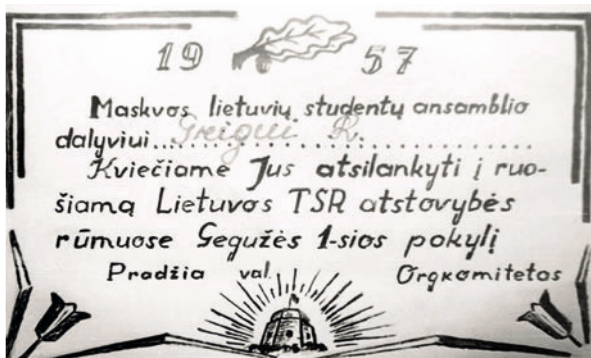 19 57
Maskvos lietuvių studentų ansamblio
dalyviui.................................
Kviečiame Jus atsilankyti į ruo-
šiamą Lietuvos TSR atstovybės
rūmuose Gegužės 1-sios pokylį
Pradžia val. Orgkomitetas